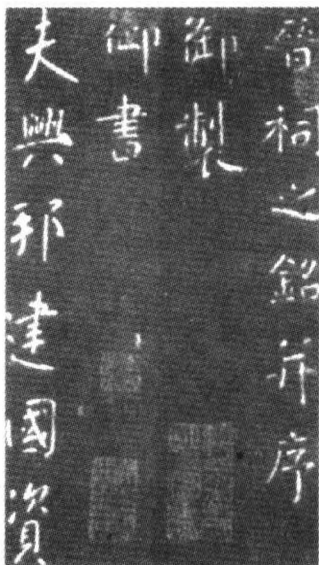 晉祠之銘并序
御製
御書
夫興邦建國資